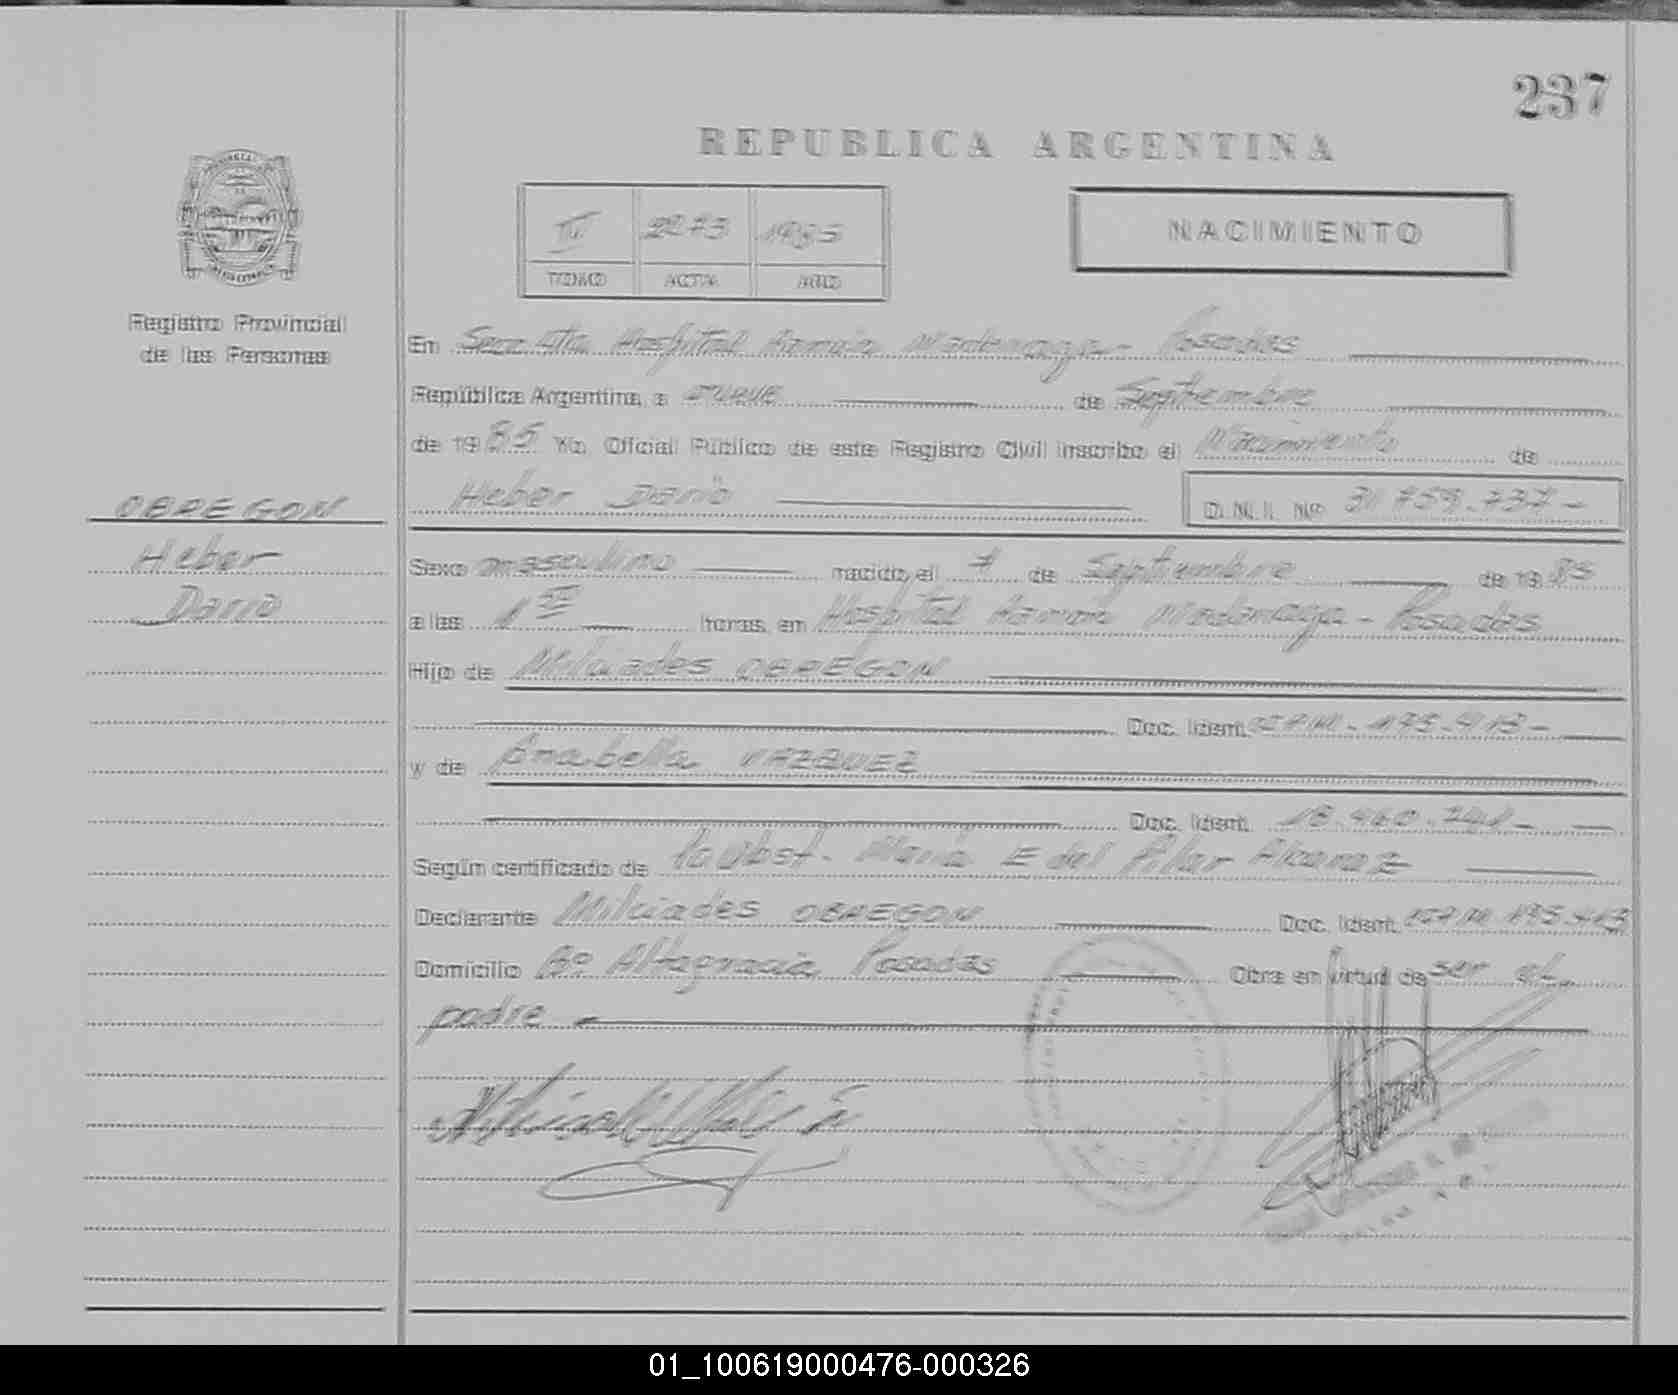 237
REPUBLICA ARGENTINA
IV 2273 1985
TOMO ACTA AÑO
NACIMIENTO
Registro Provincial
de las Personas
OBREGON
Heber
Darío
En Secc 4ta Hospital Ramón Madariaga - Posadas
República Argentina, a nueve de Septiembre
de 1985 Yo, Oficial Público de este Registro Civil inscribo el Nacimiento de
Heber Darío D.N.I. Nº 31.759.737-
Sexo masculino nacido el 7 de Septiembre de 1985
a las horas, en Hospital Ramón Madariaga - Posadas
Hijo de Milciades OBREGON
Doc. Ident.
y de Anabella VAZQUEZ
Doc. Ident. 18.460.241-
Según certificado de la Obst. María E del Pilar Alcaraz
Declarante Milciades OBREGON Doc. Ident.
Domicilio Bº Altagracia Posadas Obra en virtud de ser el
padre
01_100619000476-000326